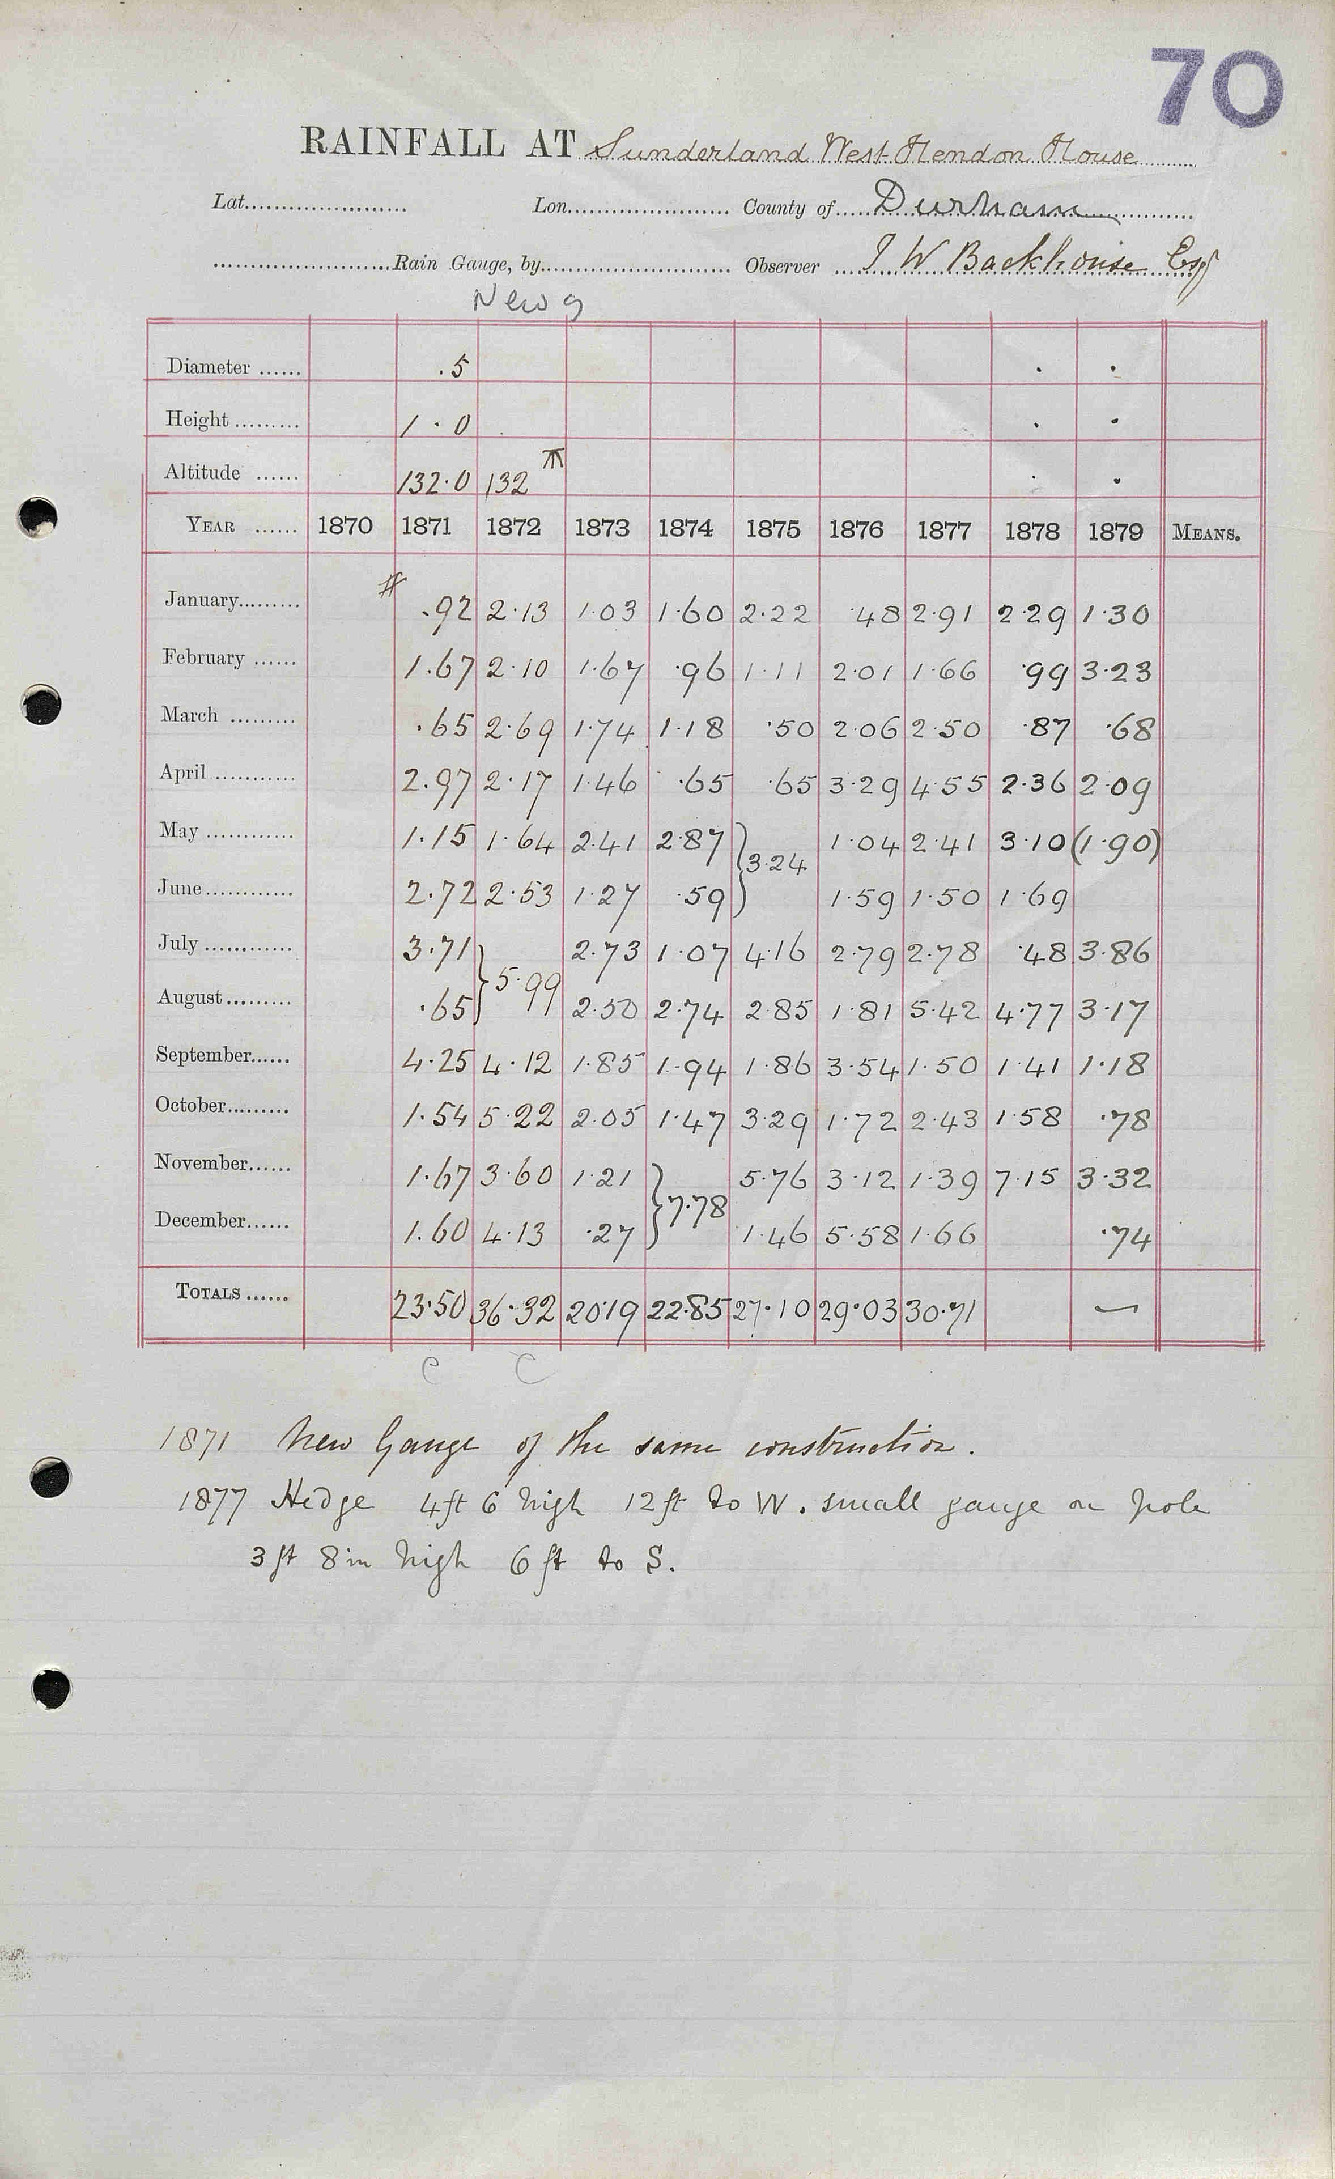 70
RAINFALL AT Sunderland West Hendon House
Lat. Lon. County of Durham
Rain Gauge, by Observer T W Backhouse Esq
New g
Diameter ...... .5 . .
Height ......... 1.0 . .
Altitude ...... 132.0 132 . .
YEAR ...... 1870 1871 1872 1873 1874 1875 1876 1877 1878 1879 MEANS.
January......... # .92 2.13 1.03 1.60 2.22 .48 2.91 2.29 1.30
February ...... 1.67 2.10 1.67 .96 1.11 2.01 1.66 .99 3.23
March ......... .65 2.69 1.74 1.18 .50 2.06 2.50 .87 .68
April ........... 2.97 2.17 1.46 .65 .65 3.29 4.55 2.36 2.09
May ............ 1.15 1.64 2.41 2.87 } 3.24 1.04 2.41 3.10 (1.90)
June............ 2.72 2.53 1.27 .59 1.59 1.50 1.69
July ............ 3.71 } 5.99 2.73 1.07 4.16 2.79 2.78 .48 3.86
August......... .65 2.50 2.74 2.85 1.81 5.42 4.77 3.17
September...... 4.25 4.12 1.85 1.94 1.86 3.54 1.50 1.41 1.18
October......... 1.54 5.22 2.05 1.47 3.29 1.72 2.43 1.58 .78
November...... 1.67 3.60 1.21 } 7.78 5.76 3.12 1.39 7.15 3.32
December...... 1.60 4.13 .27 1.46 5.58 1.66 .74
TOTALS ...... 23.50 36.32 20.19 22.85 27.10 29.03 30.71 —
c c
1871 New Gauge of the same construction.
1877 Hedge 4ft 6 high 12ft to W. small gauge on pole
3ft 8in high 6ft to S.